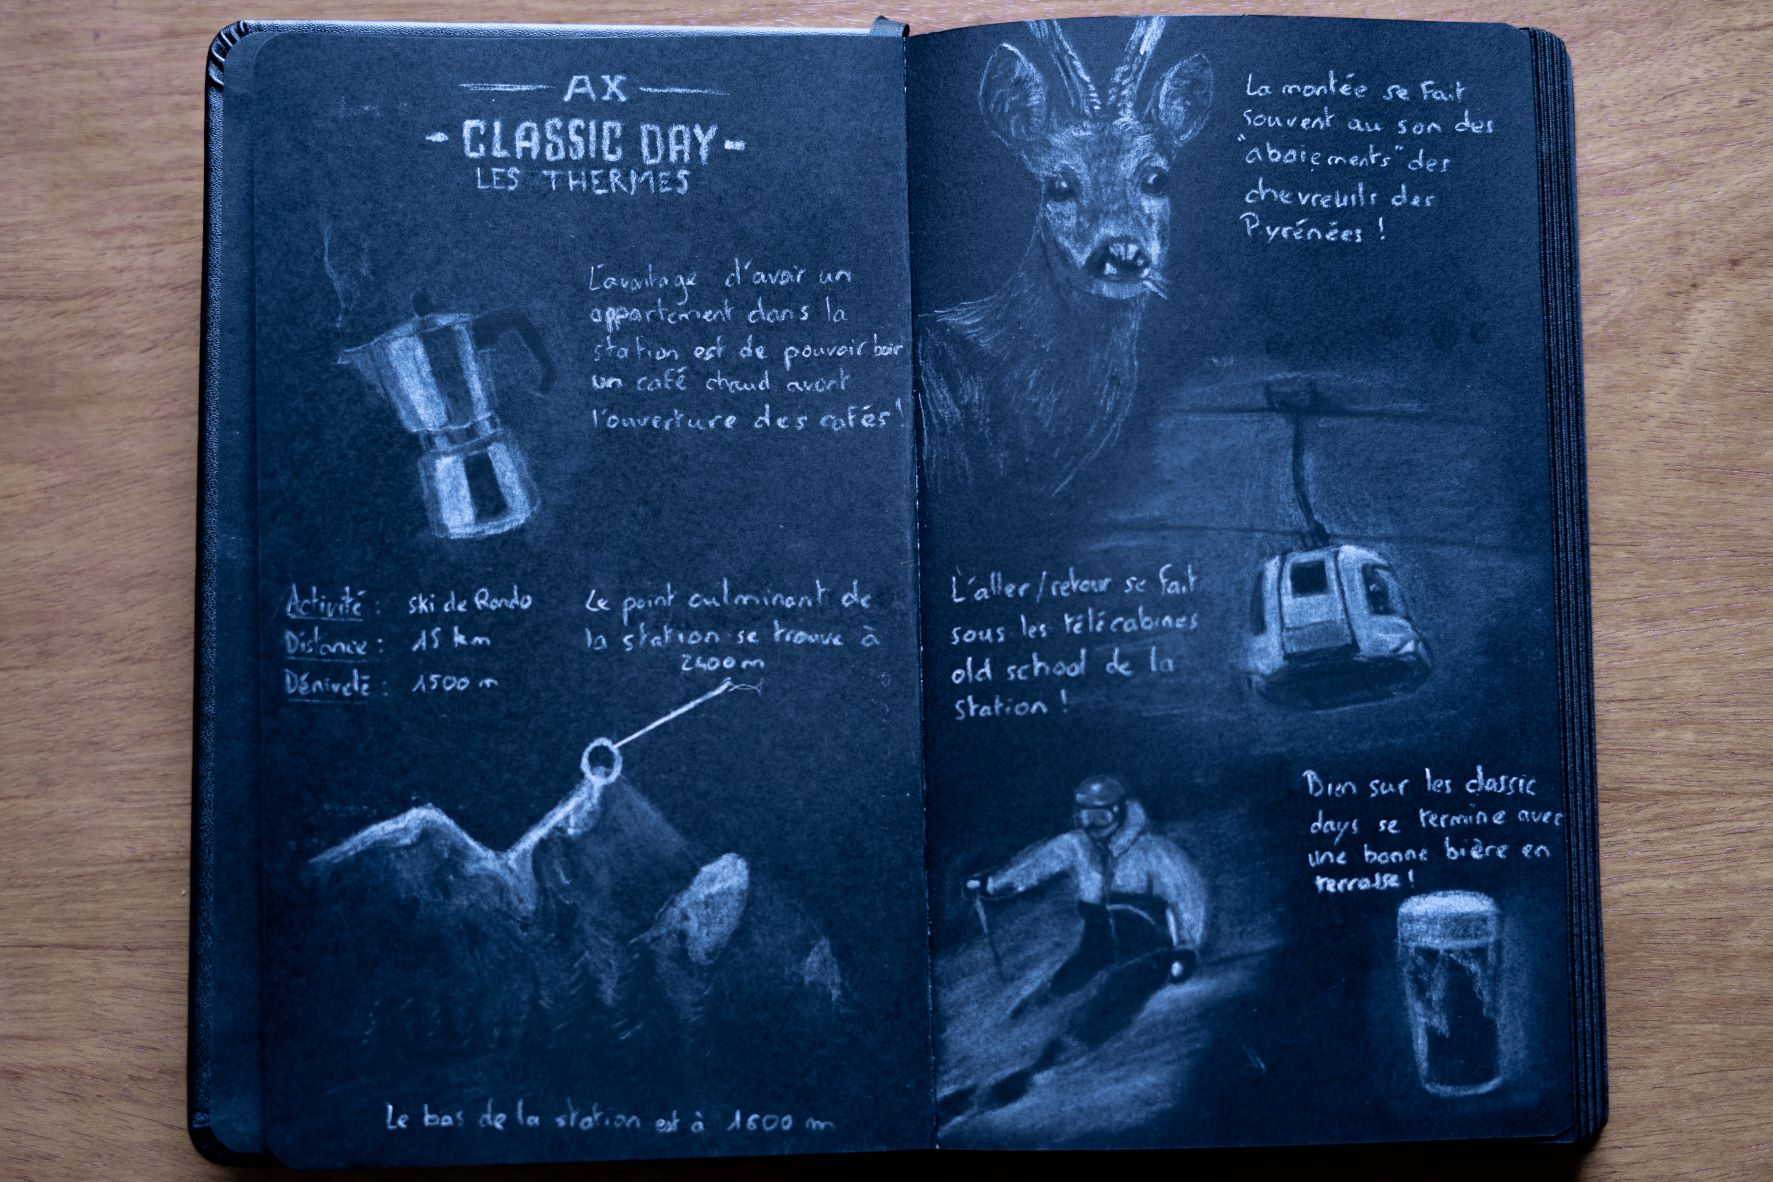 AX
- CLASSIC DAY -
LES THERMES
L'avantage d'avoir un
appartement dans la
station est de pouvoir boir
un café chaud avant
l'ouverture des cafés !
Activité : ski de Rando
Distance : 15 km
Dénivelé : 1500 m
Le point culminant de
la station se trouve à
2400 m
Le bas de la station est à 1600 m
La montée se fait
souvent au son des
"aboiements" des
chevreuils des
Pyrénées !
L'aller/retour se fait
sous les télécabines
old school de la
station !
Bien sur les classic
days se termine avec
une bonne bière en
terrasse !